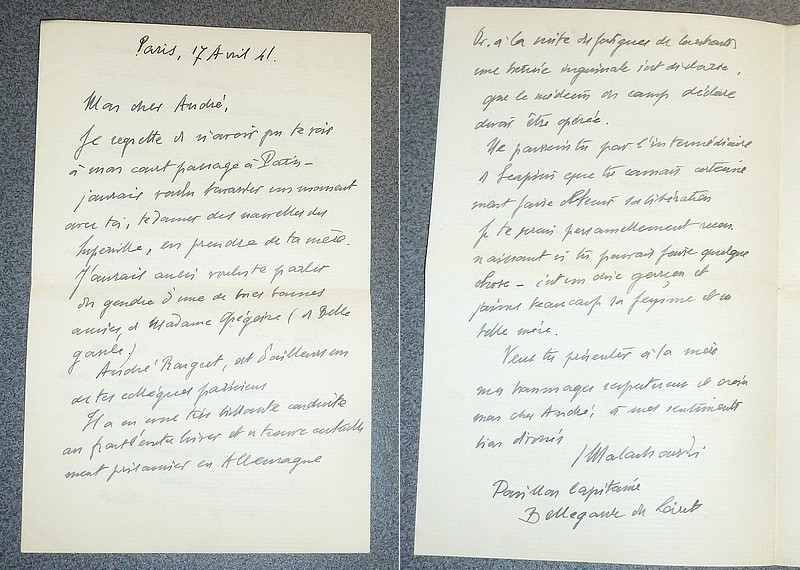 Paris, 17 Avril 41.
Mon cher André,
Je regrette de n'avoir pu te voir
à mon court passage à Paris -
j'aurais voulu bavarder un moment
avec toi, te donner des nouvelles des
en prendre de ta mère.
J'aurais aussi voulu te parler
du gendre d'une de mes bonnes
amies, de Madame Grégoire (de Belle
garde.)
André est d'ailleurs un
de tes collègues parisiens
Il a eu une très brillante conduite
au front cet hiver et se trouve actuelle
ment prisonnier en Allemagne
Or. à la suite des fatigues de
une hernie inguinale s'est déclarée,
que le médecin du camp déclare
devoir être opérée.
Ne pourrais tu par l'intermédiaire
de Scapini que tu connais certaine
ment faire obtenir sa libération
Je te serai personnellement recon
naissant si tu pouvais faire quelque
chose - c'est un chic garçon et
j'aime beaucoup sa femme et sa
belle mère.
Veux tu présenter à ta mère
mes hommages respectueux et crois
mon cher André, à mes sentiments
bien dévoués
Malachowski
Pavillon Capitaine
Bellegarde du Loiret